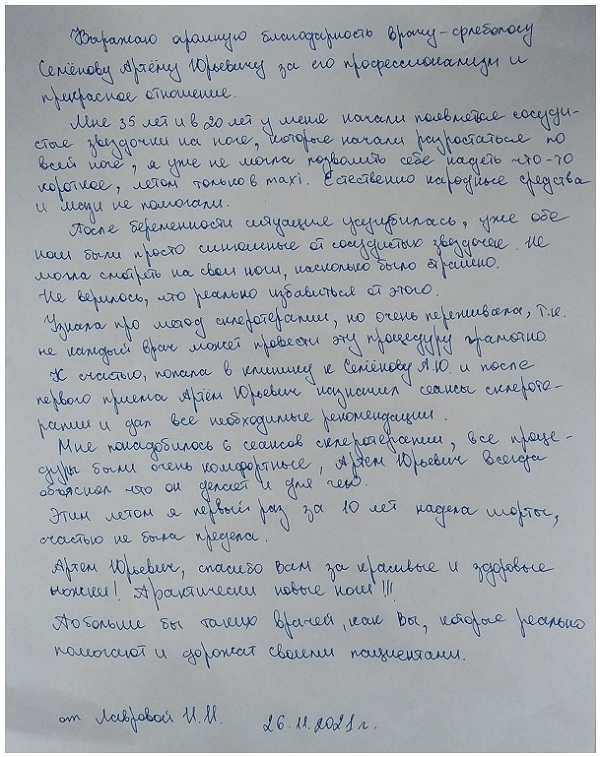 Выражаю огромную благодарность врачу-флебологу
Семёнову Артёму Юрьевичу за его профессионализм и
прекрасное отношение.
Мне 35 лет и в 20 лет у меня начали появляться сосуди-
стые звездочки на ноге, которые начали разростаться по
всей ноге, я уже не могла позволить себе надеть что-то
короткое, летом только в maxi. Естественно народные средства
и мази не помогали.
После беременности ситуация усугубилась, уже обе
ноги были просто синюшные от сосудистых звездочек. Не
могла смотреть на свои ноги, насколько было страшно.
Не верилось, что реально избавиться от этого.
Узнала про метод склеротерапии, но очень переживала, т.к.
не каждый врач может провести эту процедуру грамотно
К счастью, попала в клинику к Семёнову А.Ю. и после
первого приема Артём Юрьевич назначил сеансы склероте-
рапии и дал все необходимые рекомендации.
Мне понадобилось 6 сеансов склеротерапии, все проце-
дуры были очень комфортные, Артём Юрьевич всегда
объяснял что он делает и для чего.
Этим летом я первый раз за 10 лет надела шорты,
счастью не была предела.
Артем Юрьевич, спасибо Вам за красивые и здоровые
ножки! Практически новые ноги!!!
Побольше бы таких врачей, как Вы, которые реально
помогают и дорожат своими пациентами.
от Лавровой И.И. 26.11.2021 г.